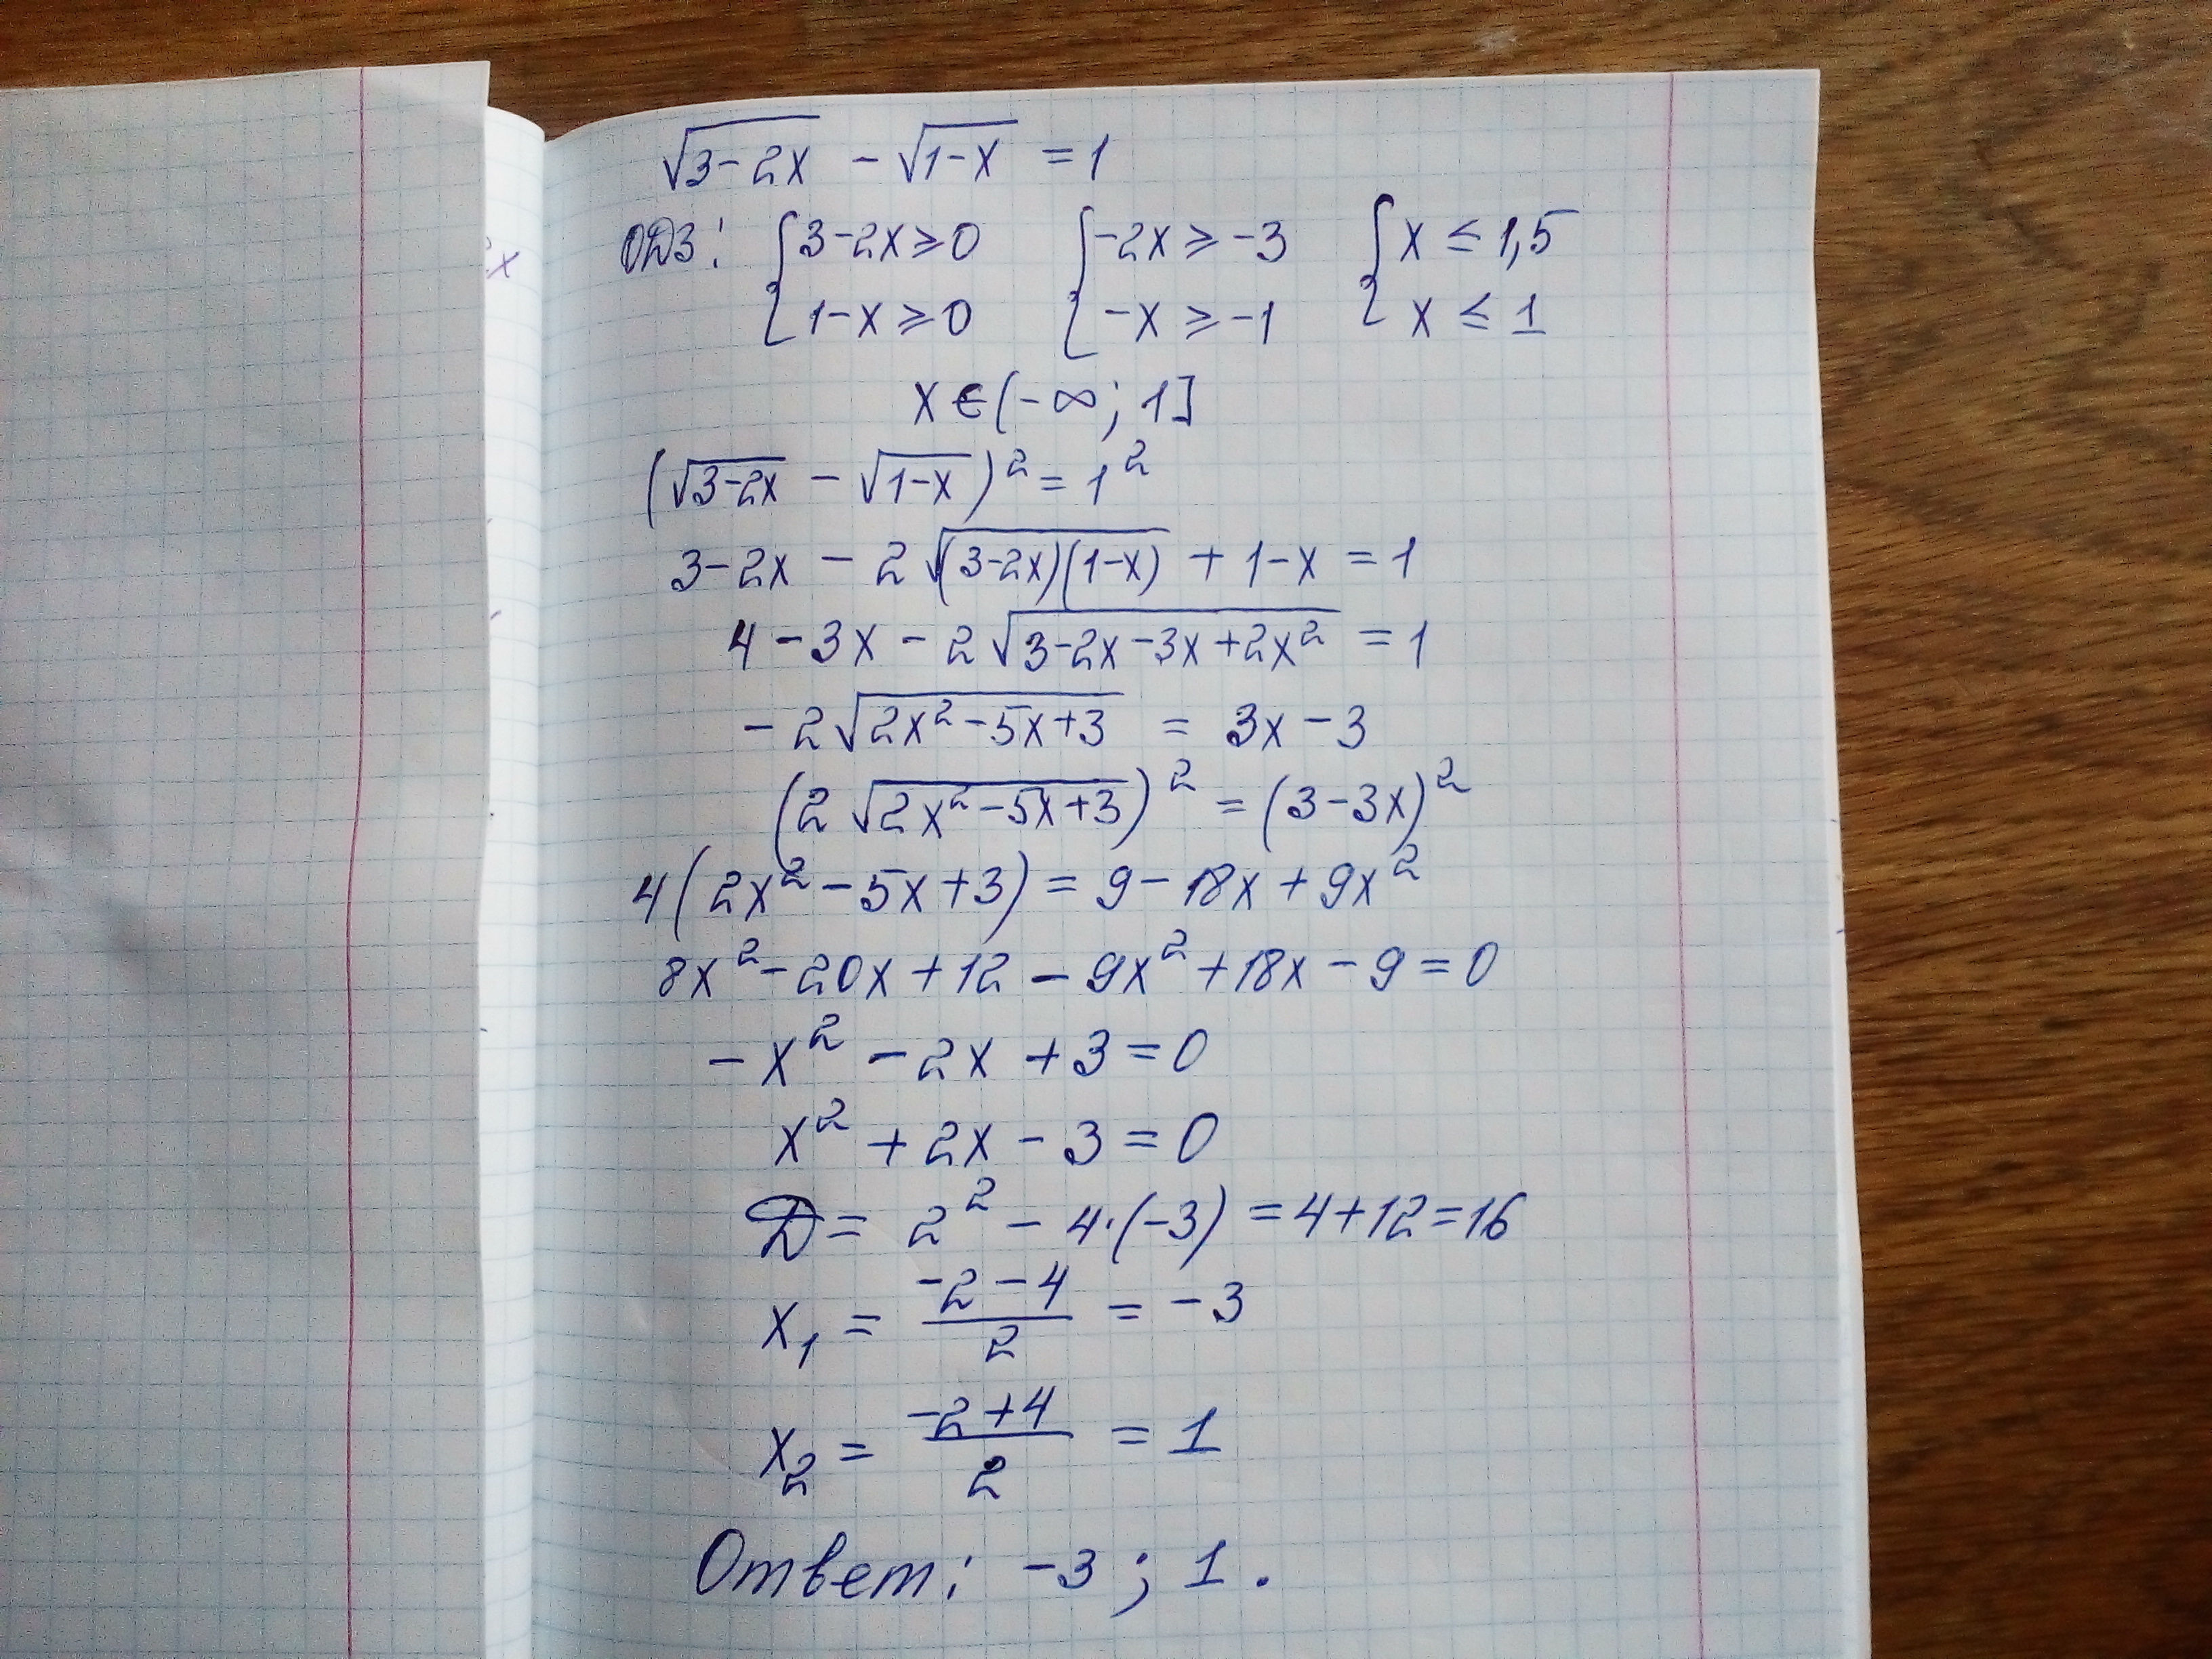 √(3-2x) - √(1-x) = 1
ОДЗ: {3-2x ≥ 0 {-2x ≥ -3 {x ≤ 1,5
{1-x ≥ 0 {-x ≥ -1 {x ≤ 1
x ∈ (-∞; 1]
(√(3-2x) - √(1-x))² = 1²
3-2x - 2√((3-2x)(1-x)) + 1-x = 1
4 - 3x - 2√(3-2x-3x+2x²) = 1
-2√(2x²-5x+3) = 3x-3
(2√(2x²-5x+3))² = (3-3x)²
4(2x²-5x+3) = 9-18x+9x²
8x²-20x+12-9x²+18x-9=0
-x²-2x+3=0
x²+2x-3=0
D = 2²-4·(-3) = 4+12=16
x₁ = (-2-4)/2 = -3
x₂ = (-2+4)/2 = 1
Ответ: -3; 1.
2x